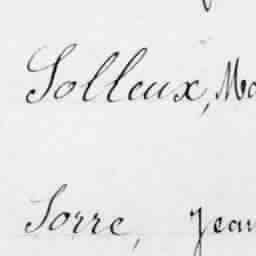 Solleux, Ma
Sorre, Jean